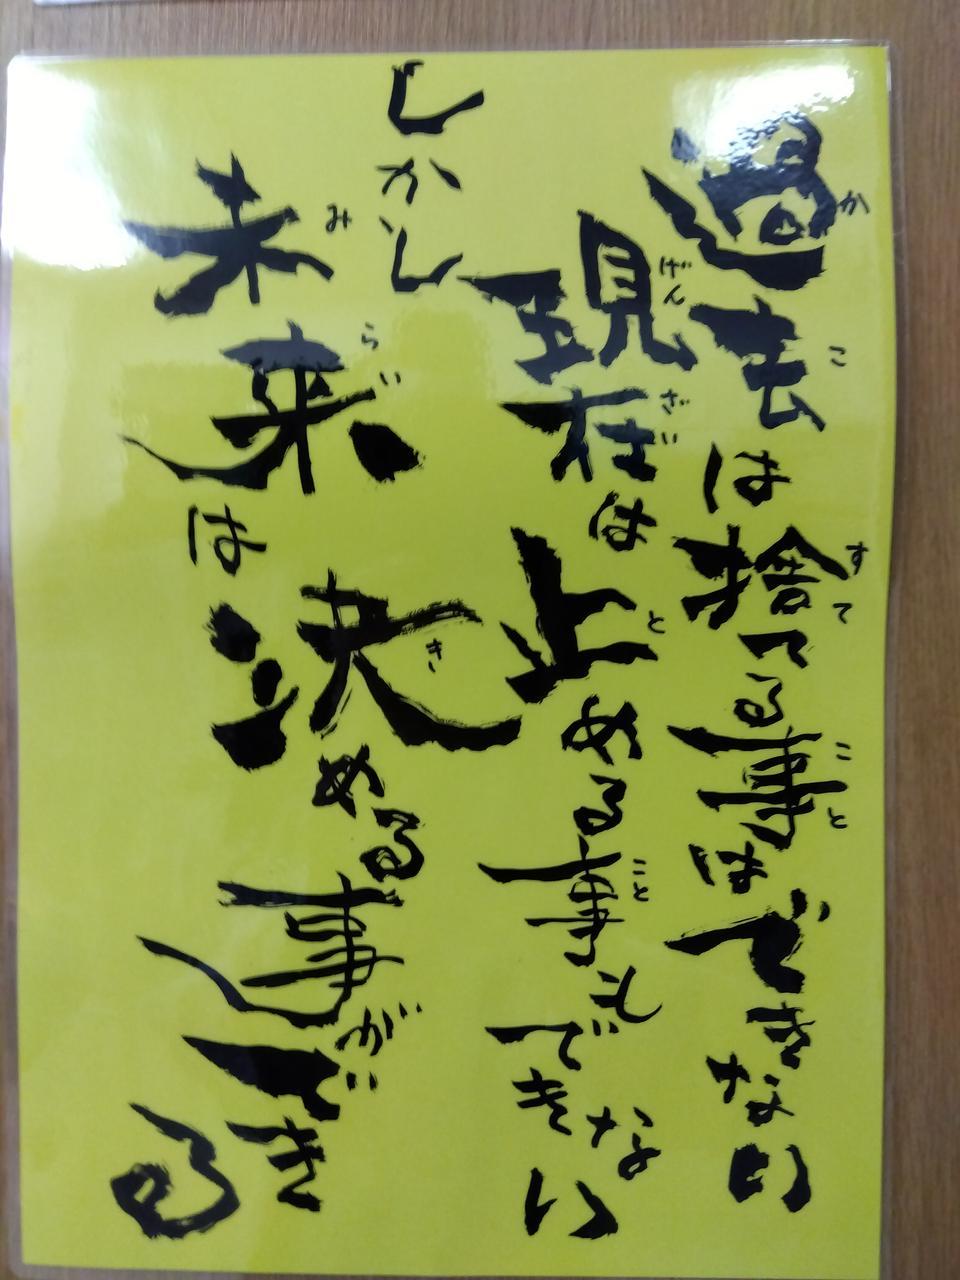 過去は捨てる事はできない
かこすてこと
現在は止める事もできない
げんざいとこと
しかし
未来は決める事ができる
みらいき